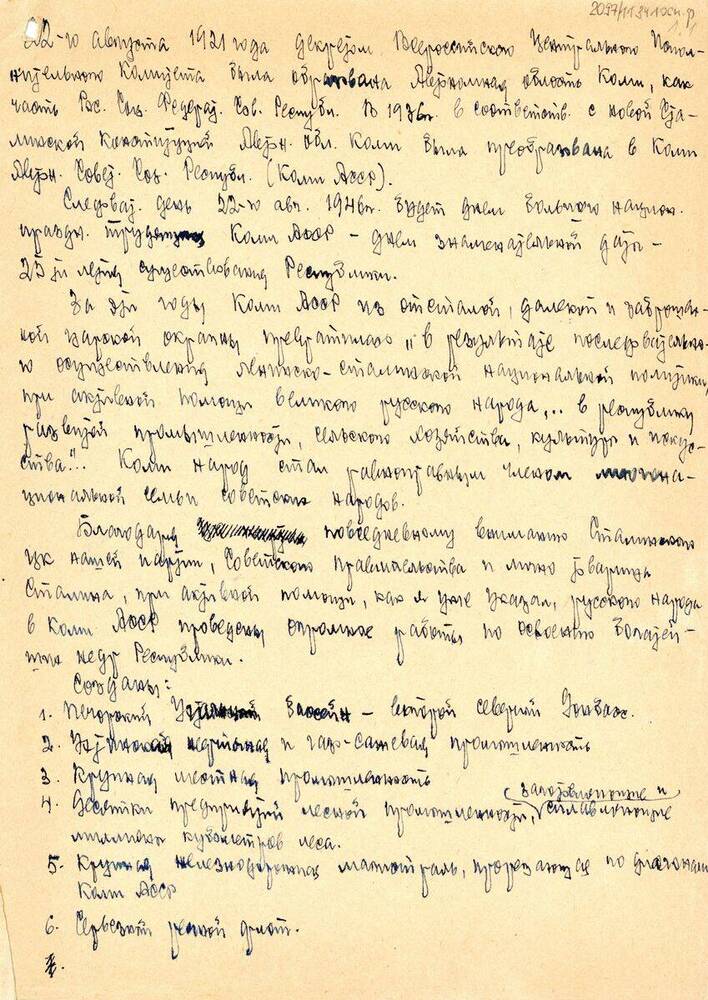 2097/1134 осн.ф.
22-го августа 1921 года декретом Всероссийского Центрального Испол-
нительного Комитета была образована Автономная область Коми, как
часть Рос. Соц. Федерат. Сов. Республ. В 1936г. в соответств. с новой Ста-
линской Конституцией Автон. обл. Коми была преобразована в Коми
Автон. Совет. Соц. Республ. (Коми АССР).
Следоват. день 22-го авг. 1946г. будет днем большого национ.
праздн. трудящихся Коми АССР – днем знаменательной даты –
25ти летия существования Республики.
За эти годы Коми АССР из отсталой, далекой и заброшен-
ной царской окраины превратилась „в результате последовательно-
го осуществления ленинско-сталинской национальной политики,
при активной помощи великого русского народа,.. в республику
развитой промышленности, сельского хозяйства, культуры и искус-
ства".. Коми народ стал равноправным членом многона-
циональной семьи советских народов.
Благодаря повседневному вниманию Сталинского
ЦК нашей партии, Советского Правительства и лично товарища
Сталина, при активной помощи, как я уже указал, русского народа
в Коми АССР проведены огромные работы по освоению богатей-
ших недр Республики.
Созданы:
1. Печорский Угольный бассейн – второй северный Донбасс.
2. Ухтинская нефтяная и газо-сажевая промышленность
3. Крупная местная промышленность
4. Десятки предприятий лесной промышленности, (заготовляющие и сплавляющие
миллионы кубометров леса.
5. Крупная железнодорожная магистраль, прорезающая по диагонали
Коми АССР
6. Серьезный речной флот.